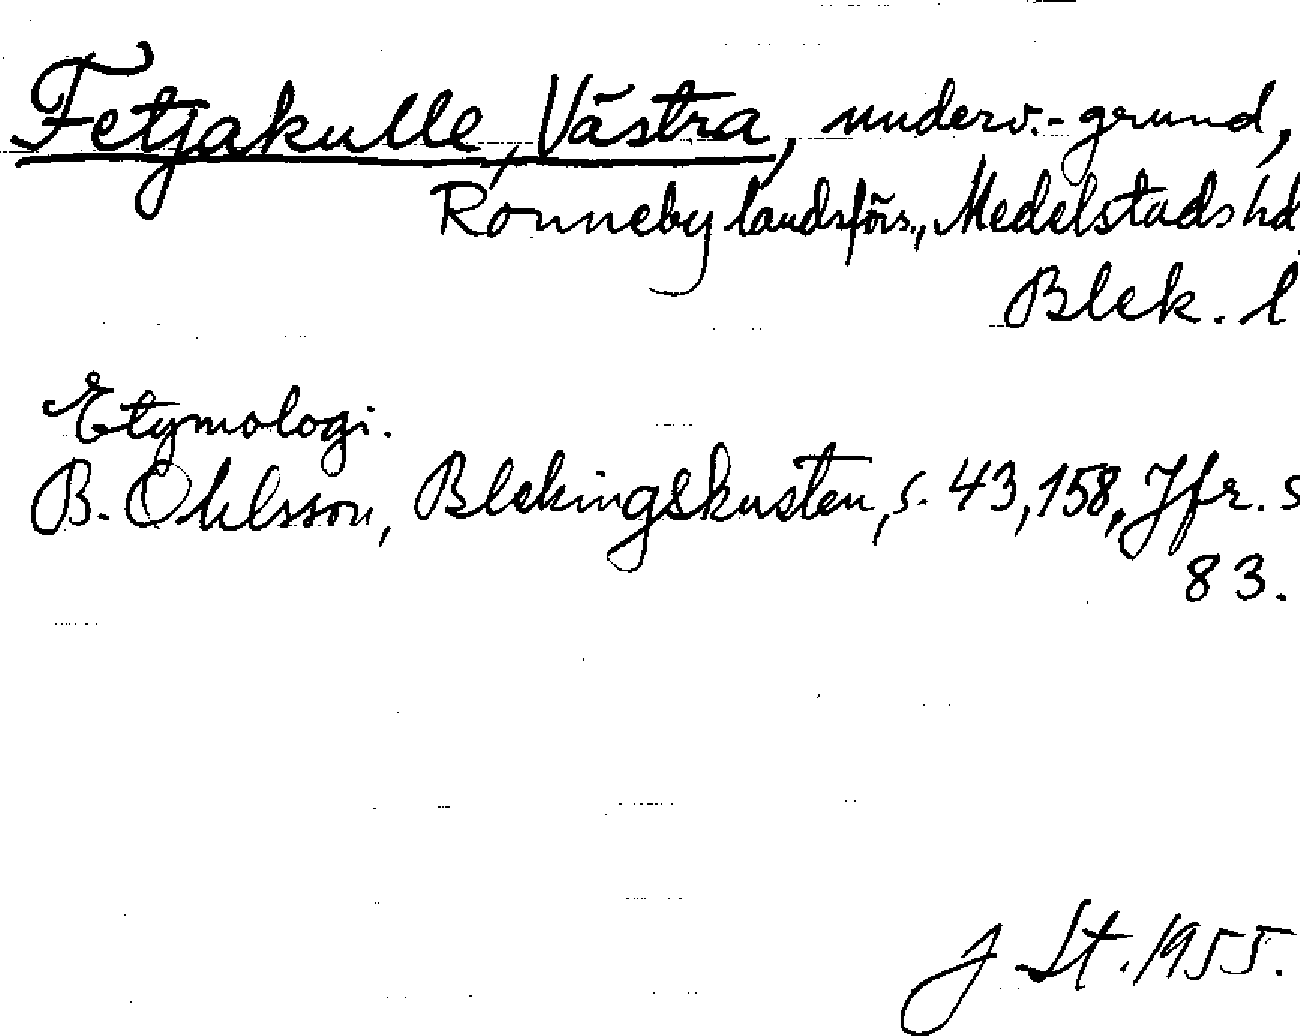 Fetjakulle, Västra, underv.-grund,
Ronneby landsförs., Medelstads hd
Blek. l
Etymologi.
B. Ohlsson, Blekingskusten, s. 43, 158, Jfr. s
83.
J St. 1955.